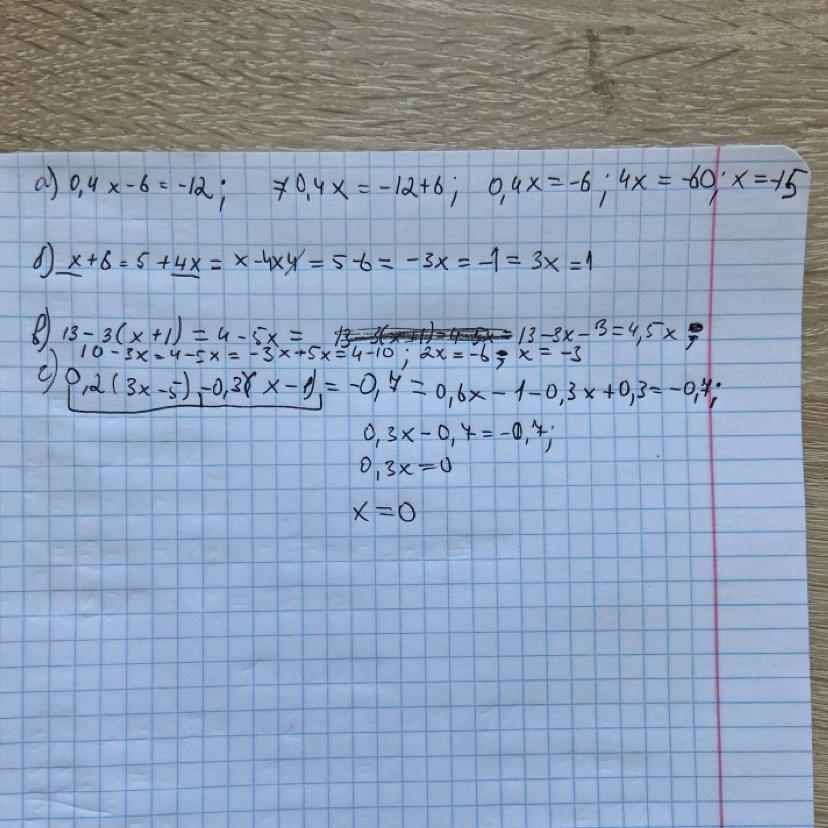 а) 0,4x-6=-12; 0,4x=-12+6; 0,4x=-6; 4x=-60; x=-15
б) x+6=5+4x= x-4x = 5-6= -3x=-1= 3x=1
в) 13-3(x+1)=4-5x= 13-3x-3=4,5x;
10-3x=4-5x=-3x+5x=4-10; 2x=-6; x=-3
г) 0,2(3x-5)-0,3(x-1)=-0,7= 0,6x-1-0,3x+0,3=-0,7;
0,3x-0,7=-0,7;
0,3x=0
x=0